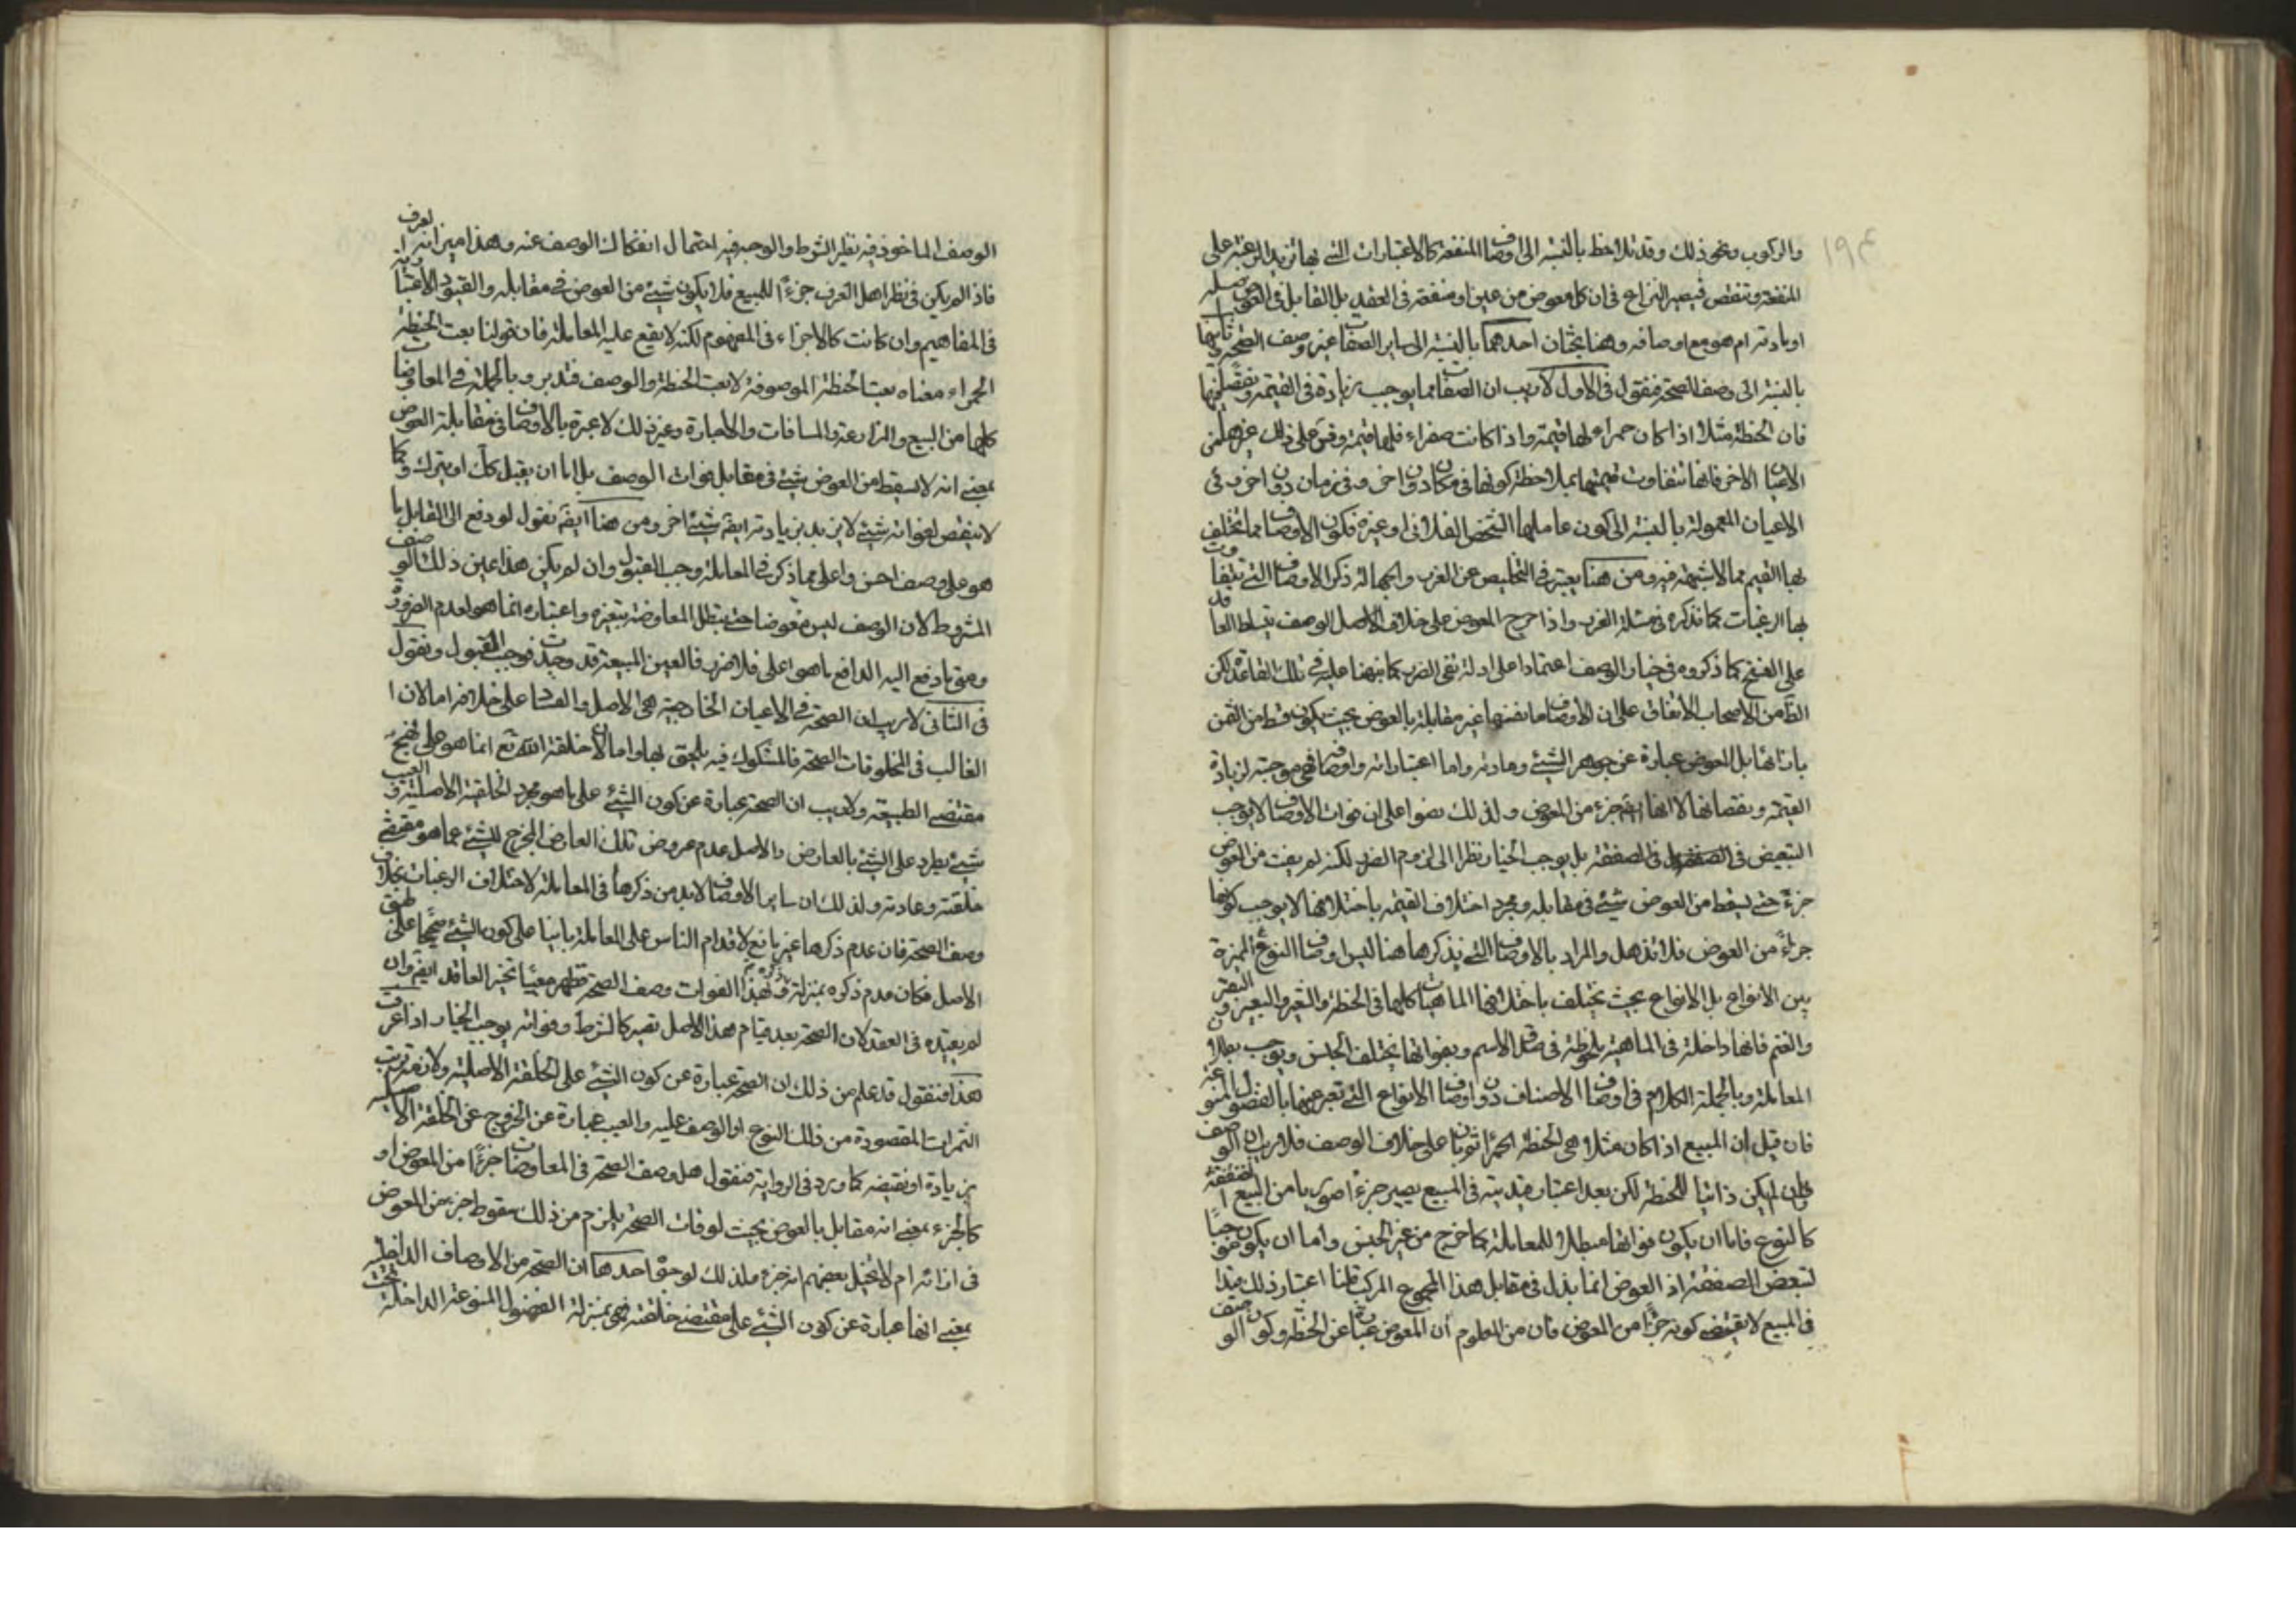 والركوب ونحو ذلك وقد تلاحظ بالنسبة الى اوصاف المنفعة كالاعتبارات التي بها تزيد الرغبة على
المنفعة وتنقص فيصير النزاع في ان كل معوض من عين او منفعة في العقد بل القابل في العوض اصله
او مادته ام هو مع اوصافه وهنا بحثان احدهما بالنسبة الى ساير الصفات غير وصف الصحة وثانيهما
بالنسبة الى وصف الصحة فنقول في الاول لا ريب ان الصفات مما يوجب زيادة في القيمة ونقصا فيها
فان الحنطة مثلا اذا كان حمراء لها قيمة واذا كانت صفراء فلها قيمة وقس على ذلك غيرها من
الاعيان الاخر فانها تتفاوت قيمتها بملاحظة كونها في مكان دون اخر وفي زمان دون اخر وفي
الاعيان المعمولة بالنسبة الى كون عاملها الشخص الفلاني او غيره فكون الاوصاف مما تختلف
بها القيم مما لا شبهة فيه ومن هنا يعتبر في التخليص عن الغرر والجهالة ذكر الاوصاف التي تتفاوت
بها الرغبات كما نذكره في مسئلة الغرر واذا خرج المعوض على خلاف الاصل الوصف تسلط العاقد
على الفسخ كما ذكروه في خيار الوصف اعتمادا على ادلة نفي الضرر كما نبهنا عليه في تلك القاعدة لكن
الظ من الاصحاب الاتفاق على ان الاوصاف بنفسها غير مقابلة بالعوض بحيث يكون قسط من الثمن
بازائها بل العوض عبارة عن جوهر الشيء ومادته واما اعتباراته واوصافه فهي موجبة لزيادة
القيمة ونقصانها لا انها جزء من المعوض ولذلك نصوا على ان فوات الاوصاف لا يوجب
التبعيض في الصفقة بل يوجب الخيار نظرا الى لزوم الضرر لكنه لم يفت من العوض
جزء حتى يسقط من العوض شيء في مقابله ومجرد اختلاف القيمة باختلافها لا يوجب كونها
جزءً من العوض فلا تذهل والمراد بالاوصاف التي نذكرها هنا ليس اوصاف النوع المميزة
بين الانواع بل الانواع بحيث يختلف باختلافها الماهيات كلها في الحنطة والشعير والبعير والبقر
والغنم فانها داخلة في الماهية ملحوظة في صدق الاسم وبفواتها يختلف الجنس ويوجب بطلان
المعاملة وبالجملة الكلام في اوصاف الاصناف دون اوصاف الانواع التي تعبر عنها بالفصول المنوعة
فان قيل ان المبيع اذا كان مثلا هي الحنطة الحمراء ثم بان على خلاف الوصف فلا ريب ان الوصف
وان لم يكن ذاتيا للحنطة لكن بعد اعتبار قيديته في المبيع يصير جزء صوريا من المبيع
كالنوع فاما ان يكون فواتها مبطلا للمعاملة كما خرج من غير الجنس واما ان يكون موجبا
لتبعض الصفقة اذ العوض انما بذل في مقابل هذا المجموع المركب قلنا اعتبار ذلك قيدا
في المبيع لا يقتضي كونه جزءا من المعوض فان من المعلوم ان المعوض عبارة عن الحنطة وكون الوصف
الوصف الماخوذ فيه نظير الشرط والوجه فيه احتمال انفكاك الوصف عنه وهذا ميزانه العرف
فاذا لم يكن في نظر اهل العرف جزءًا للمبيع فلا يكون شيء من العوض في مقابله والقيود الاعتبارية
في المفاهيم وان كانت كالاجزاء في المفهوم لكنه لا يقع عليه المعاملة فان قولنا بعت الحنطة
الحمراء معناه بعت الحنطة الموصوفة لا بعت الحنطة والوصف فتدبر وبالجملة في المعاوضات
كلها من البيع والمزارعة والمساقات والاجارة وغير ذلك لا عبرة بالاوصاف في مقابلة العوض
بمعنى انه لا يسقط من العوض شيء في مقابل فوات الوصف بل اما ان يقبل كل او يترك وكما
لا ينقص لفواته شيء لا يزيد بزيادته ايضا شيء اخر ومن هنا ايضا نقول لو دفع الى القابل ما
هو على وصف احسن واعلى مما ذكر في المعاملة وجب القبول وان لم يكن هذا عين ذلك الوصف
المشروط لان الوصف ليس معوضا حتى يبطل المعاوضة بتغيره واعتباره انما هو لعدم الضرر
ومتى ما دفع اليه الدافع ما هو اعلى فلا ضرر فالعين المبيعة قد وجدت فوجب القبول ونقول
في الثاني لا ريب ان الصحة في الاعيان الخارجية هي الاصل والفساد على خلافه اما لان
الغالب في المخلوقات الصحة فالمشكوك فيه يلحق بها واما لان خلقة الله تع انما هو على نهج
مقتضى الطبيعة ولا ريب ان الصحة عبارة عن كون الشيء على ما هو مجرد الخلقة الاصلية والعيب
شيء يطرد على الشيء بالعارض والاصل عدم عروض تلك العارض المخرج للشيء عما هو مقتضى
خلقته وعادته ولذلك ان ساير الاوصاف لا بد من ذكرها في المعاملة لاختلاف الرغبات بخلاف
وصف الصحة فان عدم ذكرها غير مانع لاقدام الناس على المعاملة بانيا على كون الشيء صحيحا على طبق
الاصل فكان عدم ذكره بمنزلة ذكره لهذا الفوات وصف الصحة فظهر معيبا تخير العاقد ايضا وان
لم يقيده في العقد لان الصحة بعد قيام هذا الاصل تصير كالشرط وفواته يوجب الخيار اذا عرفت
هذا فنقول قد علم من ذلك ان الصحة عبارة عن كون الشيء على الخلقة الاصلية ولازمه ترتب
الثمرات المقصودة من ذلك النوع او الوصف عليه والعيب عبارة عن الخروج عن الخلقة الاصلية
بزيادة او نقيصة كما ورد في الرواية فنقول هل وصف الصحة في المعاوضات جزءًا من المعوض او
كالجزء بمعنى انه مقابل بالعوض بحيث لو فات الصحة يلزم من ذلك سقوط جزء من العوض
في ازائه ام لا يتخيل بعضهم انه جزء ملذلك لوجوه احدها ان الصحة من الاوصاف الداخلية
بمعنى انها عبارة عن كون الشيء على مقتضى خلقته فهي بمنزلة الفصول المنوعة الداخلة تحت